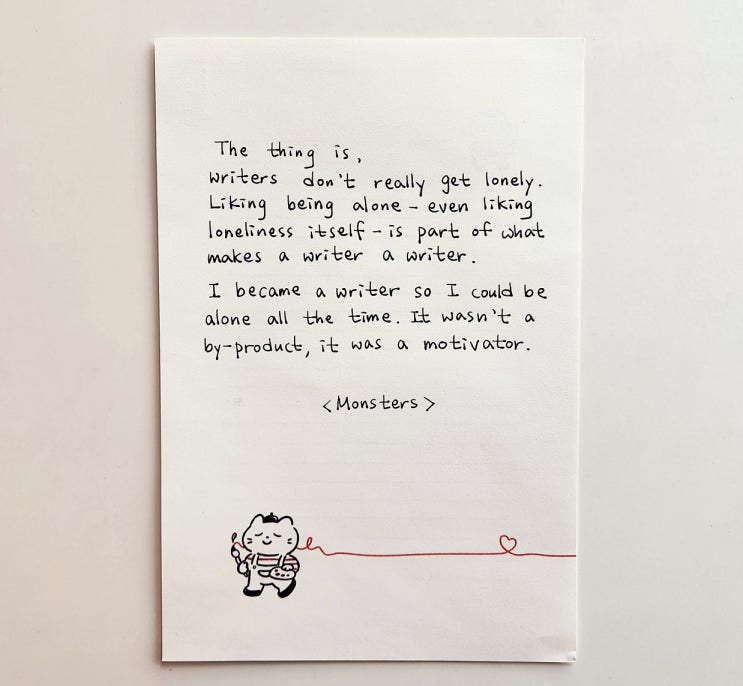 The thing is,
writers don't really get lonely.
Liking being alone – even liking
loneliness itself – is part of what
makes a writer a writer.
I became a writer so I could be
alone all the time. It wasn't a
by-product, it was a motivator.
<Monsters>